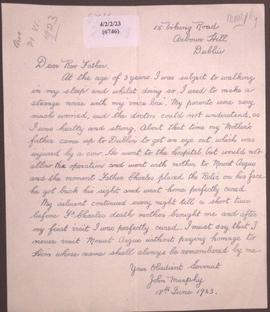 4/2/2/23
(6746)
Murphy
21 VI
1923
15 Viking Road
Arbour Hill
Dublin
Dear Rev. Father.
At the age of 3 years I was subject to walking
in my sleep and whilst doing so I used to make a
strange noise with my voice box. My parents were very
much worried, and the doctors could not understand, as
I was healthy and strong. About that time my Mother's
father came up to Dublin to get an eye out which was
injured by a cow. He went to the hospital but would not
allow the operation and went with mother to Mount Argus
and the moment Father Charles placed the Relic on his face
he got back his sight and went home perfectly cured.
My ailment continued every night till a short time
before Fr. Charles death mother brought me and after
my first visit I was perfectly cured. I must say that I
never visit Mount Argus without paying homage to
Him whose name shall always be remembered by me
Your Obedient Servant
John Murphy
June 1923.